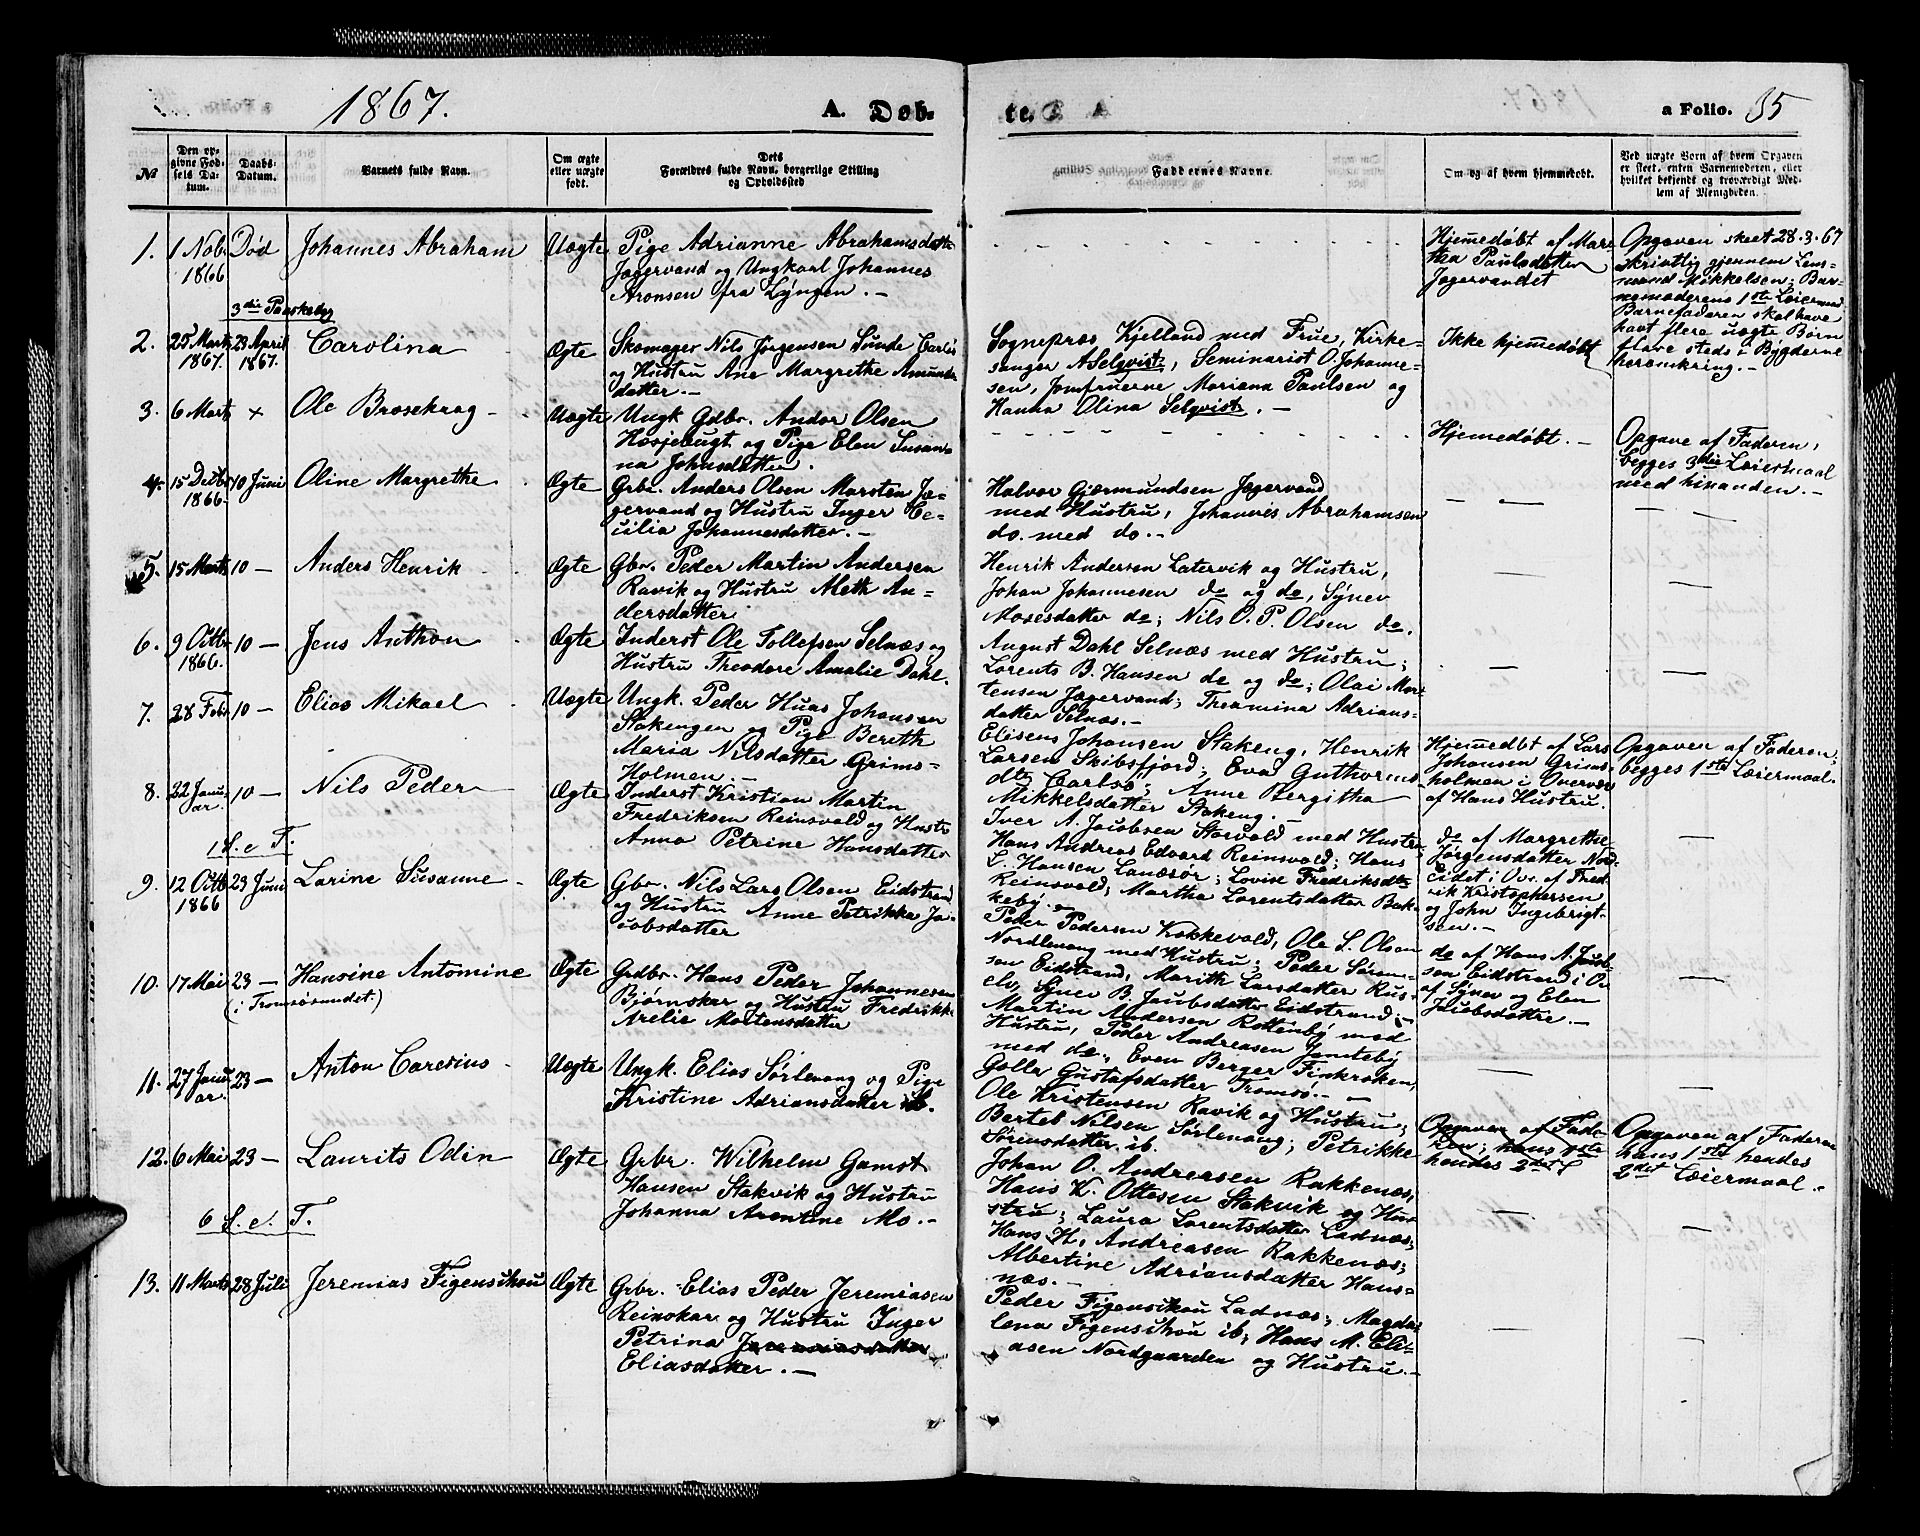 1867.
A. Døb-
te.
a Folio. 35
No
Den op-
givne Fød-
sels Da-
tum.
Daabs-
Datum.
Barnets fulde Navn.
Om ægte
eller uægte
født.
Dets
Forældres fulde Navn, borgerlige Stilling
og Opholdssted
Faddernes Navne.
Om og af hvem hjemmedøbt.
Ved uægte Børn af hvem Opgaven
er skeet, enten Barnemoderen, eller
hvilket bekjendt og troværdigt Med-
lem af Menigheden.
1. 1 Nobr 1866 Død Johannes Abraham Uægte
Pige Adrianne Abrahamsdatter
Jægervand og Ungkarl Johannes
Aronsen fra Lyngen.-
Hjemmedøbt af Mar-
tha Paulsdatter
Jægervandet
Opgaven skeet 28-3-67
skriftlig gjennem Lens-
mand Mikkelsen; Bar-
nemoderens 1ste Leiermaal
Barnefaderen skal have
havt flere uægte Børn
flere steds i Bygderne
heromkring.-
3die Paaskedag
2. 25 Marts 1867. 23 April 1867. Carolina Ægte
Skomager Nils Jørgensen Sunde Carlsø
og Hustru Ane Margrethe Amunds-
datter.-
Sognepræs Kjelland med Frue, Kirke-
sanger A Selqvist, Seminarist O. Johanne-
sen, Jomfruerne Mariana Paulsen og
Hanna Olina Selqvist.-
Ikke hjemmedøbt
3. 6 Marts + Ole Brosekrag Uægte
Ungk Gdbr. Andor Olsen
Hessjebugt og Pige Elen Susan-
na Johnsdatter.
Hjemmedøbt.-
Opgave af Faderen,
begges 3die Leiermaal
med hinanden.-
4. 15 Decbr 1866 10 Juni Oline Margrethe Ægte
Grbr. Anders Olsen Marsten Jæ-
gervand og Hustru Inger Ce-
cilia Johannesdatter.-
Halvor Gjærmundsen Jægervand
med Hustru, Johannes Abrahamsen
do. med do.-
5. 15 Marts 10 — Anders Henrik Ægte
Gbr. Peder Martin Andersen
Ravik og Hustru Aleth An-
dersdatter
Henrik Andersen Latervik og Hustru,
Johan Johannesen do og do, Synev
Mosesdatter do; Nils O. P. Olsen do.
6. 9 Octbr 1866. 10 — Jens Anthon Ægte
Inderst Ole Tollefsen Selnæs og
Hustru Theodore Amalie Dahl.
August Dahl Selnæs med Hustru;
Lorents B. Hansen do og do; Olai Mor-
tensen Jægervand; Theamina Adrians-
datter Selnæs.-
7. 28 Febr 10 — Elias Mikael Uægte
Ungk. Peder Huas Johansen
Stakengen og Pige Berith
Maria Nilsdatter Grims-
Holmen.-
Elisens Johansen Stakeng, Henrik
Larsen Skibsfjord; Eva Guthorms-
dtr Carlsø; Anne Bergitha
Mikkelsdatter Stakeng.-
Hjemmedøbt af Lars
Johansen Grims-
holmen i Overvær
af Hans Hustru.
Opgaven af Faderen,
begges 1ste Leiermaal.
8. 22 Janu-
ar. 10 — Nils Peder Ægte
Inderst Kristian Martin
Fredriksen Reinsvold og Hustr
Anna Petrine Hansdatter
Iver A. Jacobsen Storvold med Hustru,
Hans Andreas Edvard Reinsvold; Hans
L. Hansen Lanæsør; Lovise Fredriksdtr
Reinsvold; Martha Lorentsdatter Bak-
keby.-
do af Margrethe
Jørgensdatter Nord-
eidet i Ov. af Fred-
rik Kristophersen
og John Ingebrigt-
sen.-
1 S. e T.
9. 12 Octb 1866 23 Juni Larine Susanne Ægte
Gbr. Nils Lars Olsen Eidstrand
og Hustru Anne Petrikke Ja-
cobsdatter
Peder Pedersen Kokkevold, Ole L. Olsen
Nordlenang med Hustru; Peder Sørens-
sen Eidstrand, Marith Larsdatter Rus-
elv, Synev B. Jacobsdatter Eidstrand;-
do af Hans A. Jacob-
sen Eidstrand i Ov
af Synev og Elen
Jacobsdattre.-
10. 17 Mai 23 — Hansine Antomine Ægte
(i Tromsøsundet.)
Grdbr. Hans Peder Johannesen
Bjørnskar og Hustru Fredrikke
Arelie Mortensdatter
Martin Andersen Rottenby med
Hustru, Peder Andreasen Jamteby
med do, Even Berger Finkroken,
Golle Gustafsdatter Tromsø.-
11. 27 Janu-
ar. 23 — Anton Caresius Uægte
Ungk. Elias Sørlenang og Pige
Kristine Adriansdatter ib.
Ole Kristensen Ravik og Hustru;
Bertel Nilsen Sørlenang; Petrikke
Sørensdatter ib.
Opgaven af Fade-
ren; hans 1ste
hendes 2det L
Opgaven af Faderen
hans 1ste hendes
2det Leiermaal.
12. 6 Mai 23 — Laurits Odin Ægte
Grbr. Wilhelm Gamst
Hansen Stakvik og Hustru
Johanna Arentine Mo.-
Johan O. Andreasen Rakkenæs,
Hans K. Ottesen Stakvik og Hu-
stru; Laura Lorentsdatter Ladnæs;
Hans H. Andreasen Rakkenæs;
Albertine Adriansdatter Hans-
næs.-
6 S. e. T.
13. 11 Marts 28 Juli Jeremias Figenschou Ægte
Grbr. Elias Peder Jeremiasen
Reinskar og Hustru Inger
Petrina Jeremiasdatter
Eliasdatter.-
Peder Figenschou Ladnæs; Magda-
lena Figenschou ib; Hans M. Eli-
asen Nordgaarden og Hustru.-